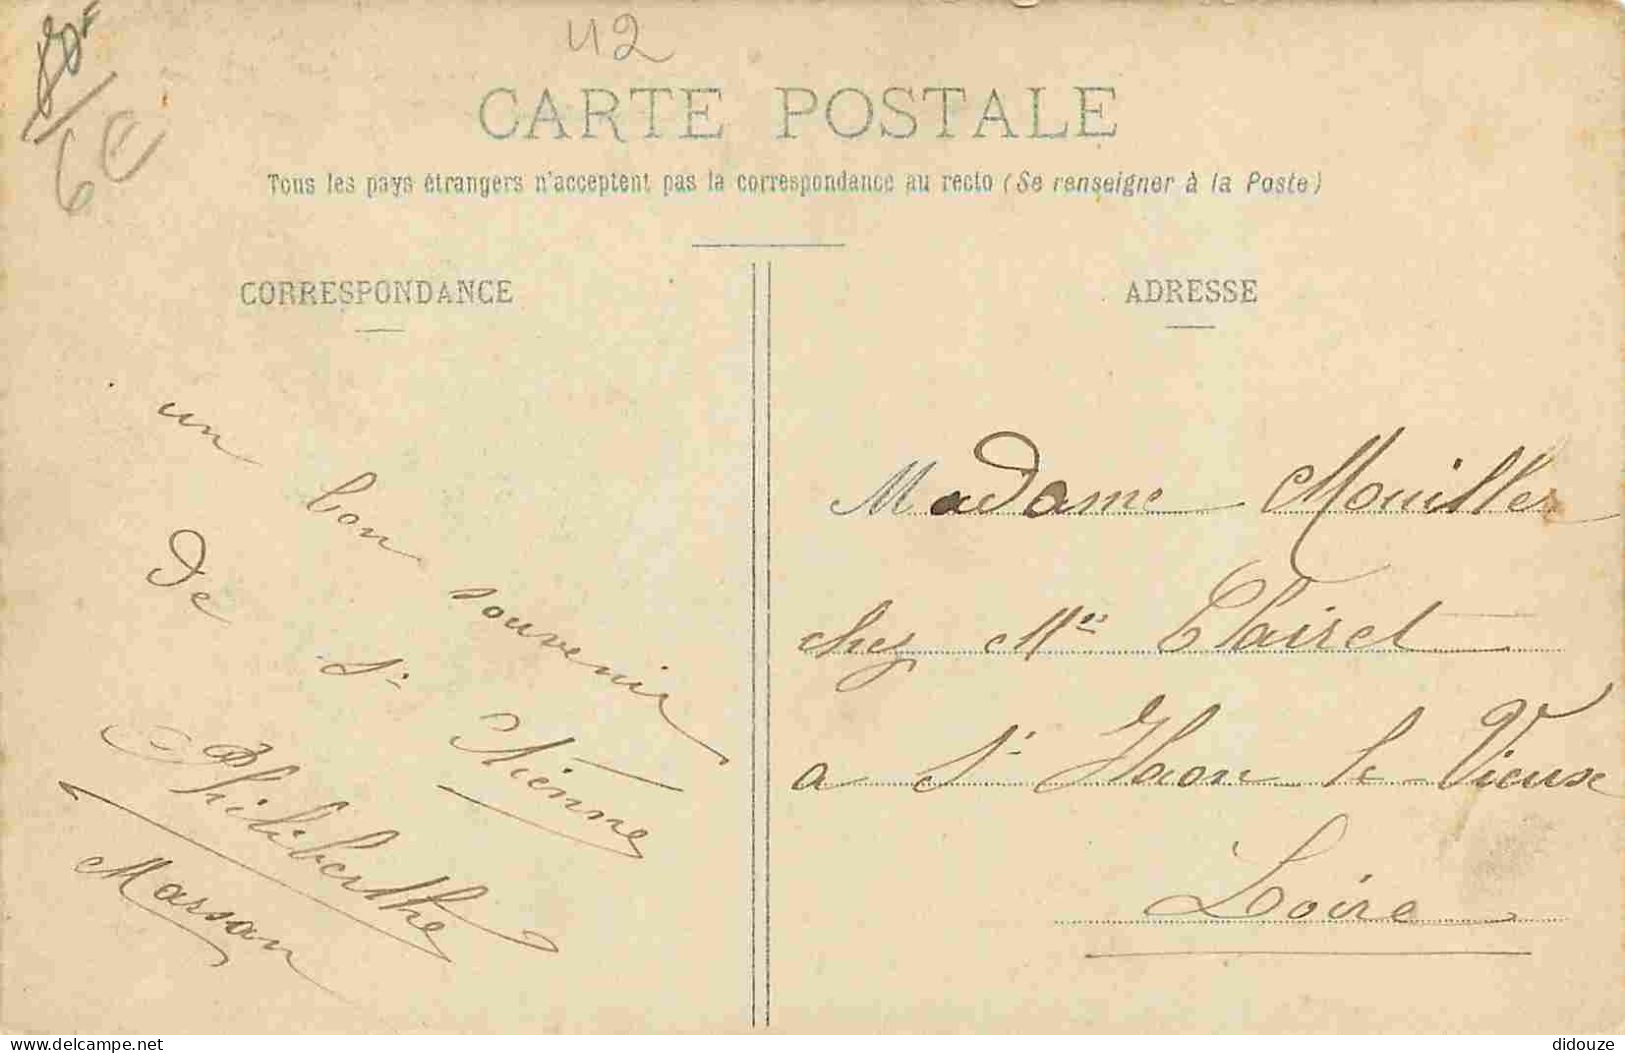 80F
6€
42
CARTE POSTALE
Tous les pays étrangers n'acceptent pas la correspondance au recto (Se renseigner à la Poste)
CORRESPONDANCE
un bon souvenir
de St Etienne
Philiberthe
Marsan
ADRESSE
Madame Mouiller
chez Mme Clairet
a St Haon le Vieux
Loire
delcampe.net
didouze